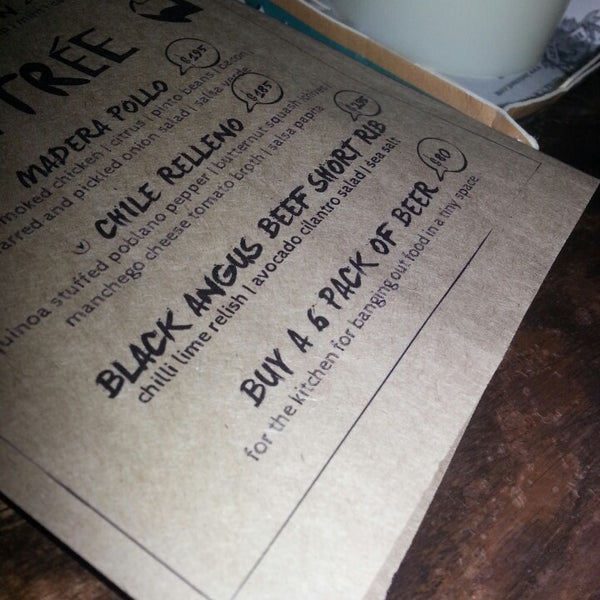 TRÉE
MADERA POLLO 195
smoked chicken | citrus | pinto beans | bacon |
charred and pickled onion salad | salsa
CHILE RELLENO 185
quinoa stuffed poblano pepper | butternut squash
manchego cheese tomato broth | salsa papria
BLACK ANGUS BEEF SHORT RIB
chilli lime relish | avocado cilantro salad | sea salt
BUY A 6 PACK OF BEER
for the kitchen for banging out food in a tiny space